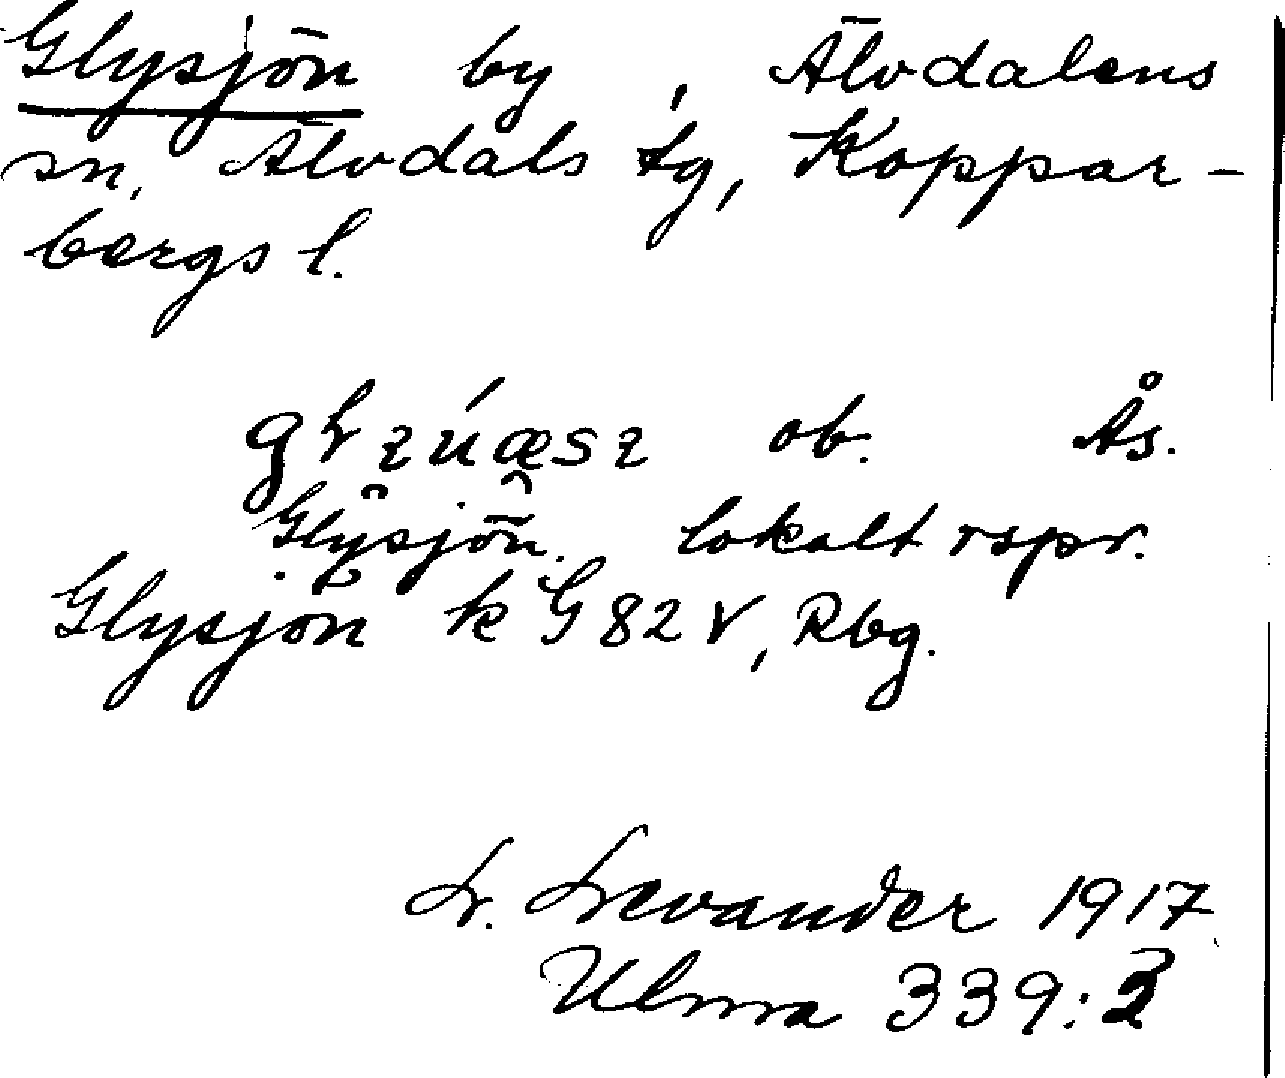 Glysjön by, Älvdalens
sn, Älvdals tg, Koppar-
bergs l.
ob. Ås.
Glysjön. lokalt rspr.
Glysjön k G 82 V, Rbg.
L. Levander 1917
Ulma 339:3